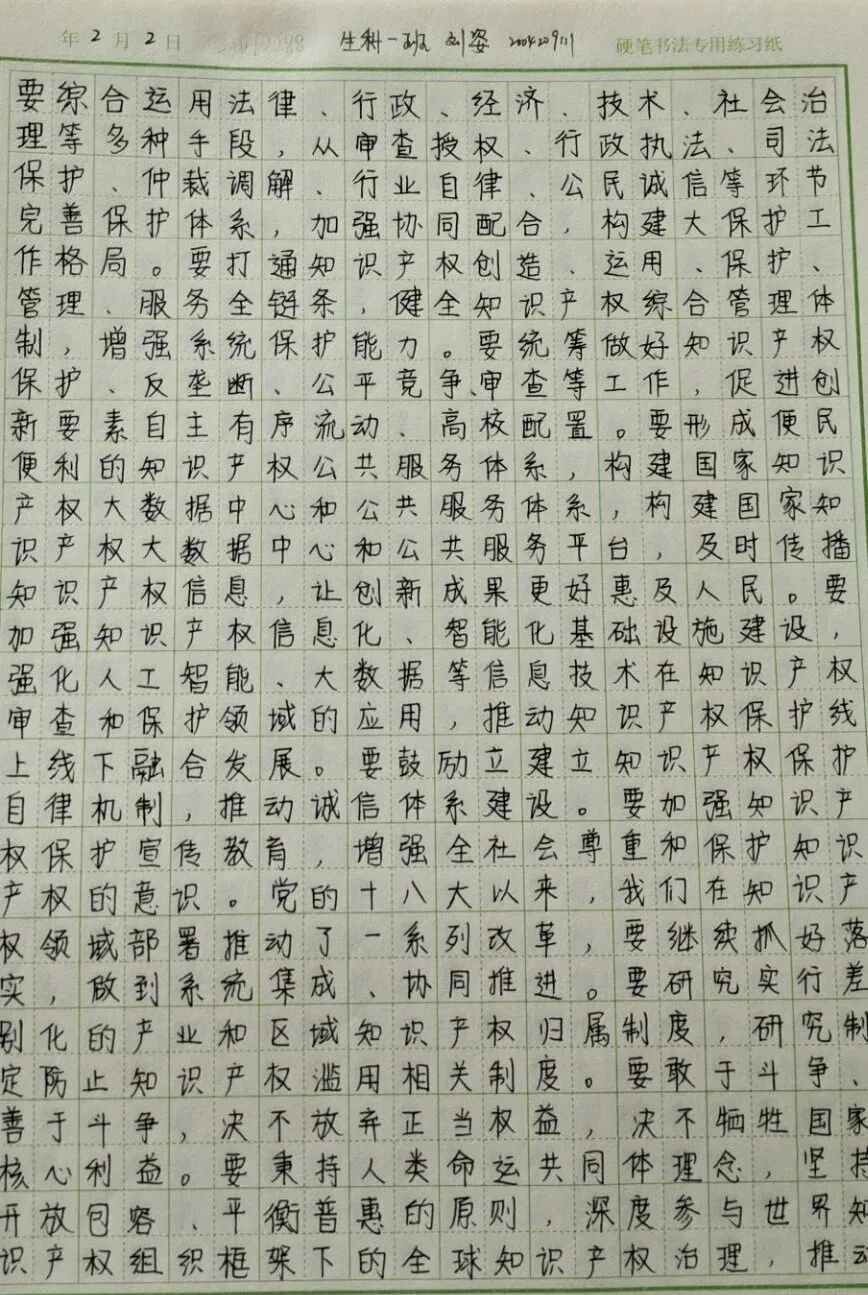 年2月2日 生科一班 刘姿 200420911 硬笔书法专用练习纸
要综合运用法律、行政、经济、技术、社会治
理等多种手段，从审查授权、行政执法、司法
保护、仲裁调解、行业自律、公民诚信等环节
完善保护体系，加强协同配合，构建大保护工
作格局。要打通知识产权创造、运用、保护、
管理、服务全链条，健全知识产权综合管理体
制，增强系统保护能力。要统筹做好知识产权
保护、反垄断、公平竞争、审查等工作，促进创
新要素自主有序流动、高校配置。要形成便民
便利的知识产权公共服务体系，构建国家知识
产权大数据中心和公共服务体系，构建国家知
识产权大数据中心和公共服务平台，及时传播
知识产权信息，让创新成果更好惠及人民。要
加强知识产权信息化、智能化基础设施建设，
强化人工智能、大数据等信息技术在知识产权
审查和保护领域的应用，推动知识产权保护线
上线下融合发展。要鼓励立建立知识产权保护
自律机制，推动诚信体系建设。要加强知识产
权保护宣传教育，增强全社会尊重和保护知识
产权的意识。党的十八大以来，我们在知识产
权领域部署推动了一系列改革，要继续抓好落
实，做到系统集成、协同推进。要研究实行差
别化的产业和区域知识产权归属制度，研究制
定防止知识产权滥用相关制度。要敢于斗争、
善于斗争，决不放弃正当权益，决不牺牲国家
核心利益。要秉持人类命运共同体理念，坚持
开放包容、平衡普惠的原则，深度参与世界知
识产权组织框架下的全球知识产权治理，推动